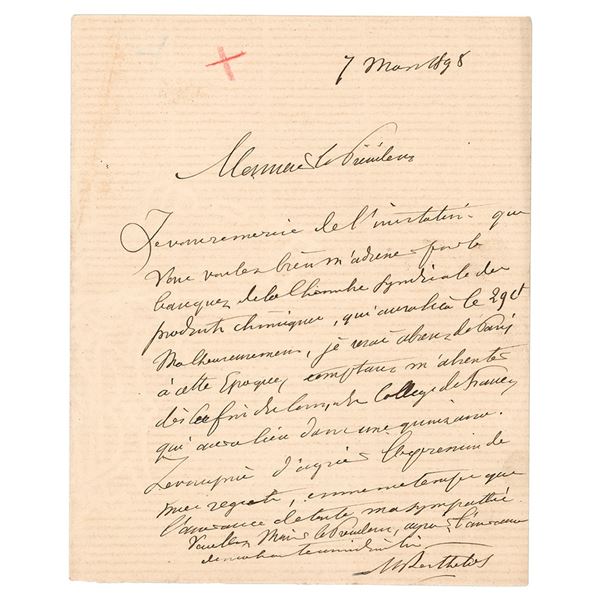 7 Mars 1898
Monsieur le Président
Je vous remercie de l'invitation que
vous voulez bien m'adresser pour le
banquet de la Chambre syndicale des
produits chimiques, qui aura lieu le 29 ct
Malheureusement, je serai absent de Paris
à cette époque, comptant m'absenter
dès la fin du cours du Collège de France,
qui aura lieu dans une quinzaine.
Je vous prie d'agréer l'expression de
mes regrets, en même temps que
l'assurance de toute ma sympathie.
Veuillez, Monsieur le Président, agréer l'assurance
de ma haute considération
M Berthelot